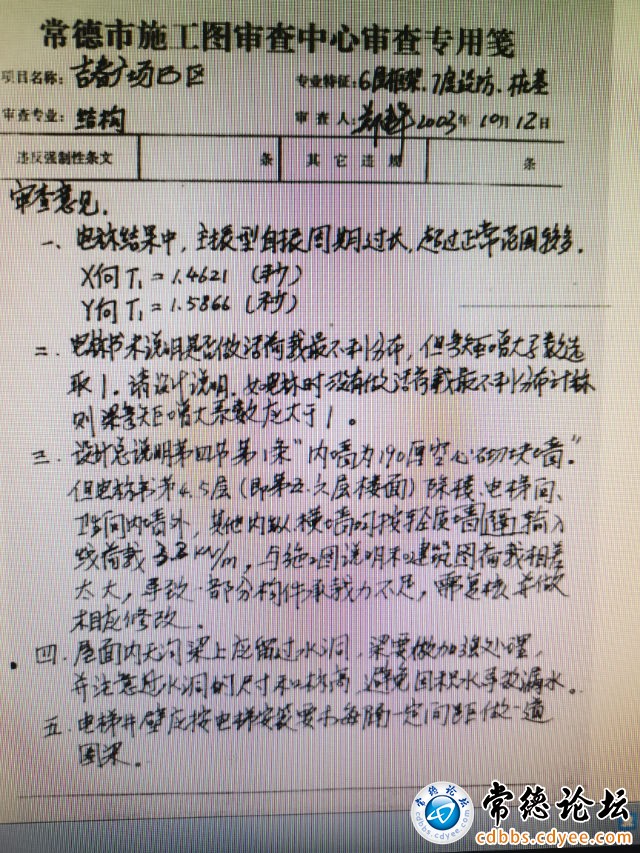 常德市施工图审查中心审查专用笺
项目名称：吉春广场B区 专业特征：6层框架、7度设防、桩基
审查专业：结构 审查人： 2003年10月12日
违反强制性条文 条 其它违规 条
审查意见.
一、电标结果中，主振型自振周期过长，超过正常范围较多.
X向T₁=1.4621（秒）
Y向T₁=1.5866（秒）
二、电算书未说明是否做活荷载最不利分布，但弯矩增大系数选
取1。请设计说明.如电算时没有做活荷载最不利分布计算
则梁弯矩增大系数应大于1。
三、设计总说明第四节第1条"内墙为190厚空心砌块墙"。
但电算书第4.5层（即第五.六层楼面）除楼、电梯间、
卫生间内墙外，其他内纵横墙时按轻质墙 输入
线荷载3.2kN/m，与施工图说明和建筑图荷载相差
太大，导致一部分构件承载力不足，需复核并做
相应修改。
四.屋面内天沟梁上应留过水洞，梁要做加强处理，
并注意过水洞的尺寸和标高 避免因积水导致漏水。
五、电梯井壁应按电梯安装要求每隔一定间距做一道
圈梁.
常德论坛
cdbbs.cdyee.com